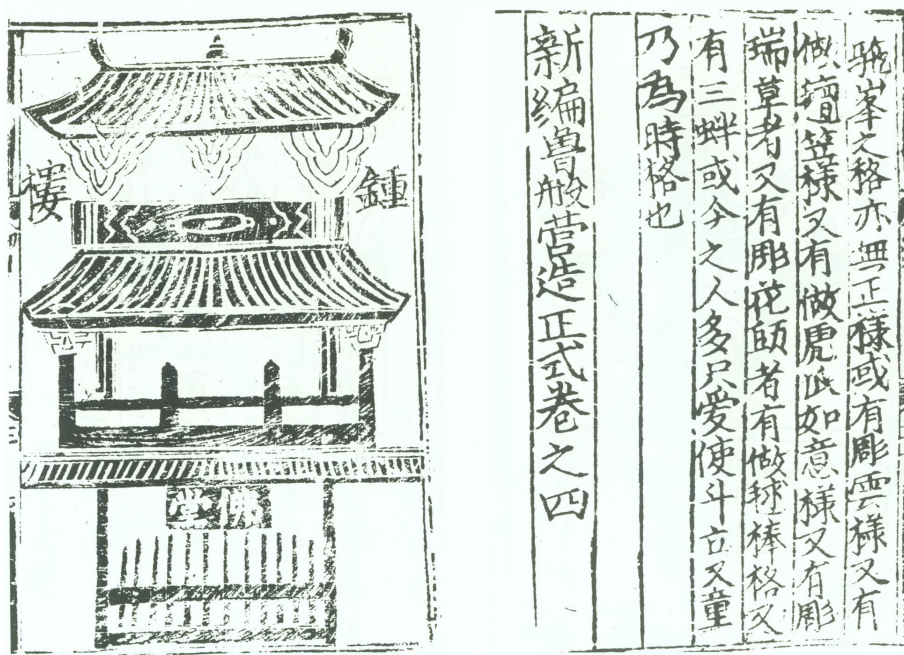 駞峯之格亦無正樣或有彫雲樣又有
做壇笠樣又有做虎爪如意樣又有彫
瑞草者又有彫花頭者有做毬棒格又
有三蚌或今之人多只愛使斗立又童
乃為時格也
新編魯般营造正式卷之四
鍾樓
堂